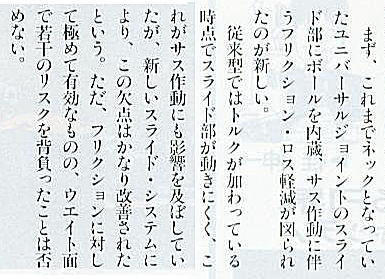 まず、これまでネックとなってい
たユニバーサルジョイントのスライ
ド部にボールを内蔵、サス作動に伴
うフリクション・ロス軽減が図られ
たのが新しい。
従来型ではトルクが加わっている
時点でスライド部が動きにくく、こ
れがサス作動にも影響を及ぼしてい
たが、新しいスライド・システムに
より、この欠点はかなり改善された
という。ただ、フリクションに対し
て極めて有効なものの、ウエイト面
で若干のリスクを背負ったことは否
めない。